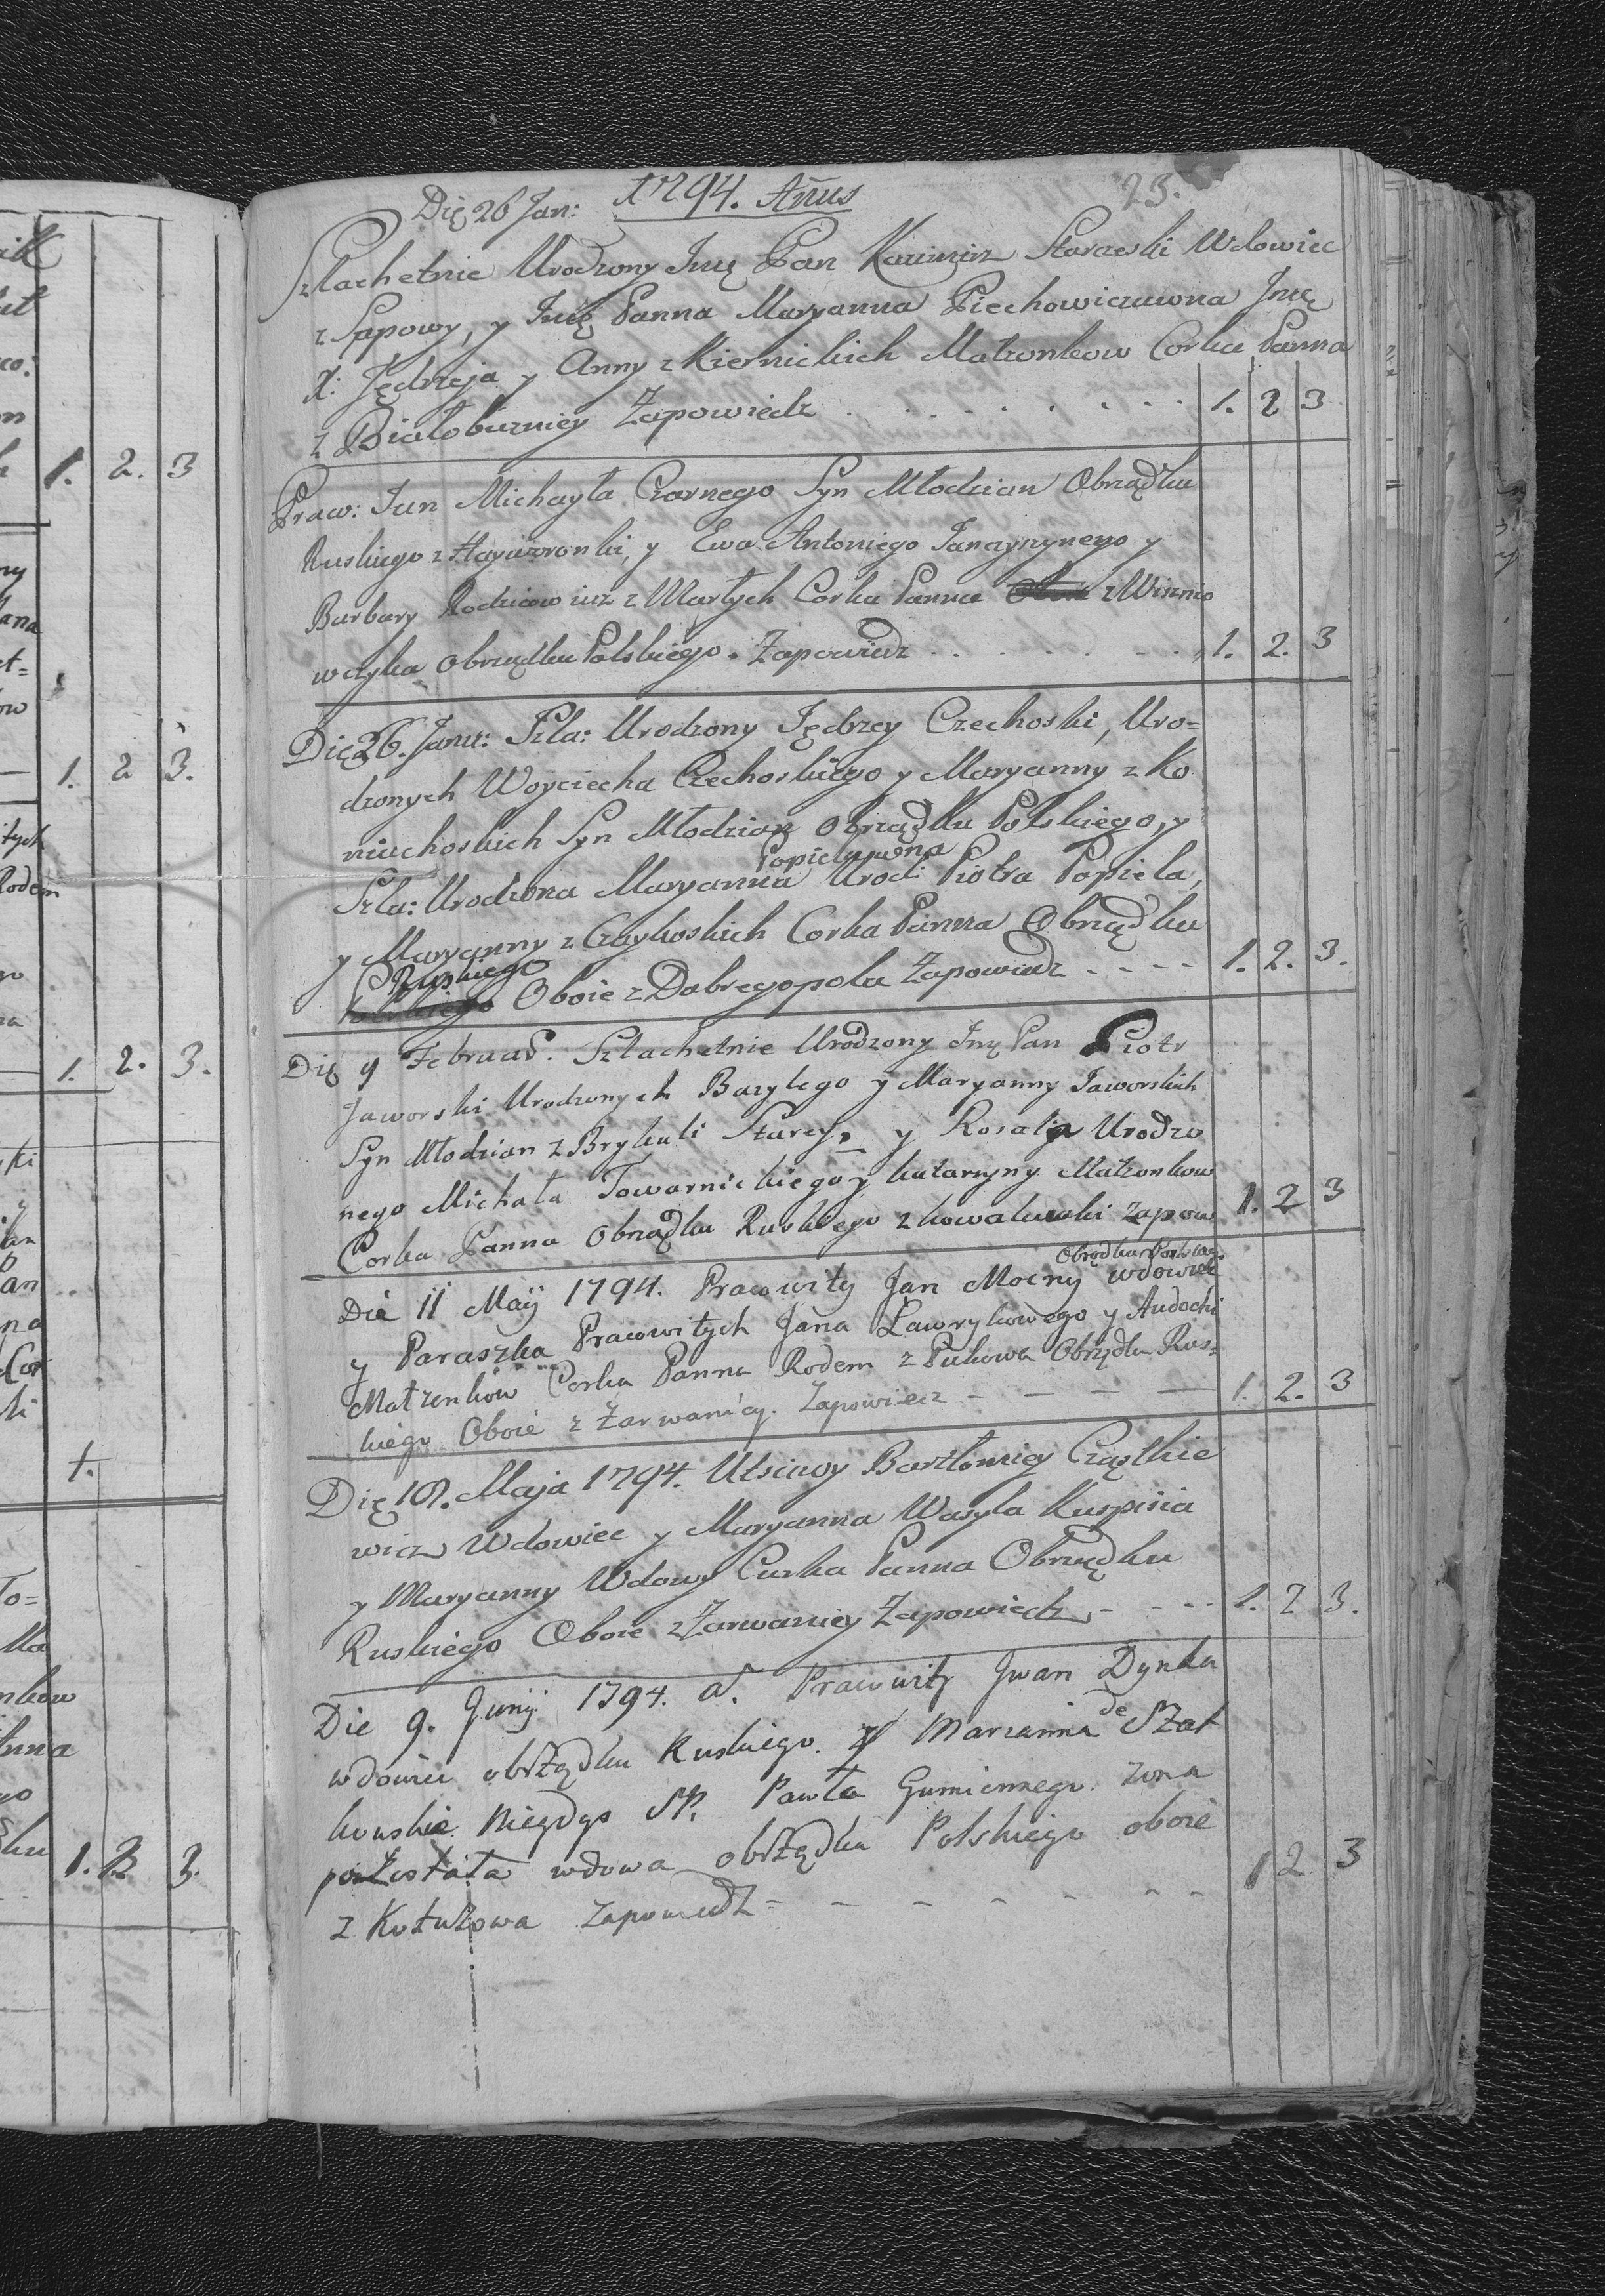 Dię 26 Jan: 1794. Añus
23.
Szlachetnie Urodzony Jmę Pan Kazimirz Starzeski Wdowiec
z Sapowy, y Jmę Panna Maryanna Piechowiczuwna Jmę
X: Jędrzeja y Anny z Kiernickich Matzonkow Corka Panna
z Białobuzniey Zapowiedz . . . . . . . . 1. 2 3
Praw: Jan Michayła Czarnego Syn Młodzian Obrządku
Ruskiego z Hayworonki, y Ewa Antoniego Janczyszynego y
Barbary Rodzicow iuz z Martych Corka Panna z Wisnio
wczyka Obrządku Polskiego. Zapowiedz . . . . . . . 1. 2. 3
Dię 26. Janu: Szla: Urodzony Jędrzey Czechoski, Uro=
dzonych Woyciecha Czechoskiego y Maryanny z Ko
niuchoskich Syn Młodzian Obrządku Polskiego, y
Popieluwna
Szla: Urodzona Maryanna Urod: Piotra Popiela,
y Maryanny z Czaykoskich Corka Panna Obrządku
Ruskiego
Oboie z Dobregopola Zapowiedz - - - - 1. 2. 3.
Dię 9 Februar. Szlachetnie Urodzony Jmę Pan Piotr
Jaworski Urodzonych Bazylego y Maryanny Jaworskich
Syn Młodzian z Brykuli Starey, y Rosalia Urodzo
nego Michała Towarnickiego y Katarzyny Matzonkow
Corka Panna Obrządku Ruskiego z Kowalewki Zapow 1. 2 3
Obrądku Polskieg.
Die 11 Maÿ 1794. Pracowity Jan Mocny wdowiec
y Paraszka Pracowitych Jana Ławrykowego y Audochi
Matzenkow Corka Panna Rodem z Pukowa Obrządku Rus=
kiego Oboie z Zarwanicy. Zapowiedz - - - - 1. 2. 3
Dię 18. Maja 1794. Utsciwy Bartłomiey Cząstkie
wicz Wdowiec y Maryanna Wasyla Kuspisia
y Maryanny Wdowy Curka Panna Obrządku
Ruskiego Oboie z Zarwaniey Zapowiedz - - - - 1. 2 3.
Die 9. Junÿ 1794. a. Pracowity Jwan Dynka
wdowiec obrządku Ruskiego. y Marzanna de Szat
kowskie. Niegdys SP. Pawła Gumiennego. zona
pozostała wdowa obrządku Polskiego oboie
z Kotuzowa zapowiedz = - - - - - - 1 2 3